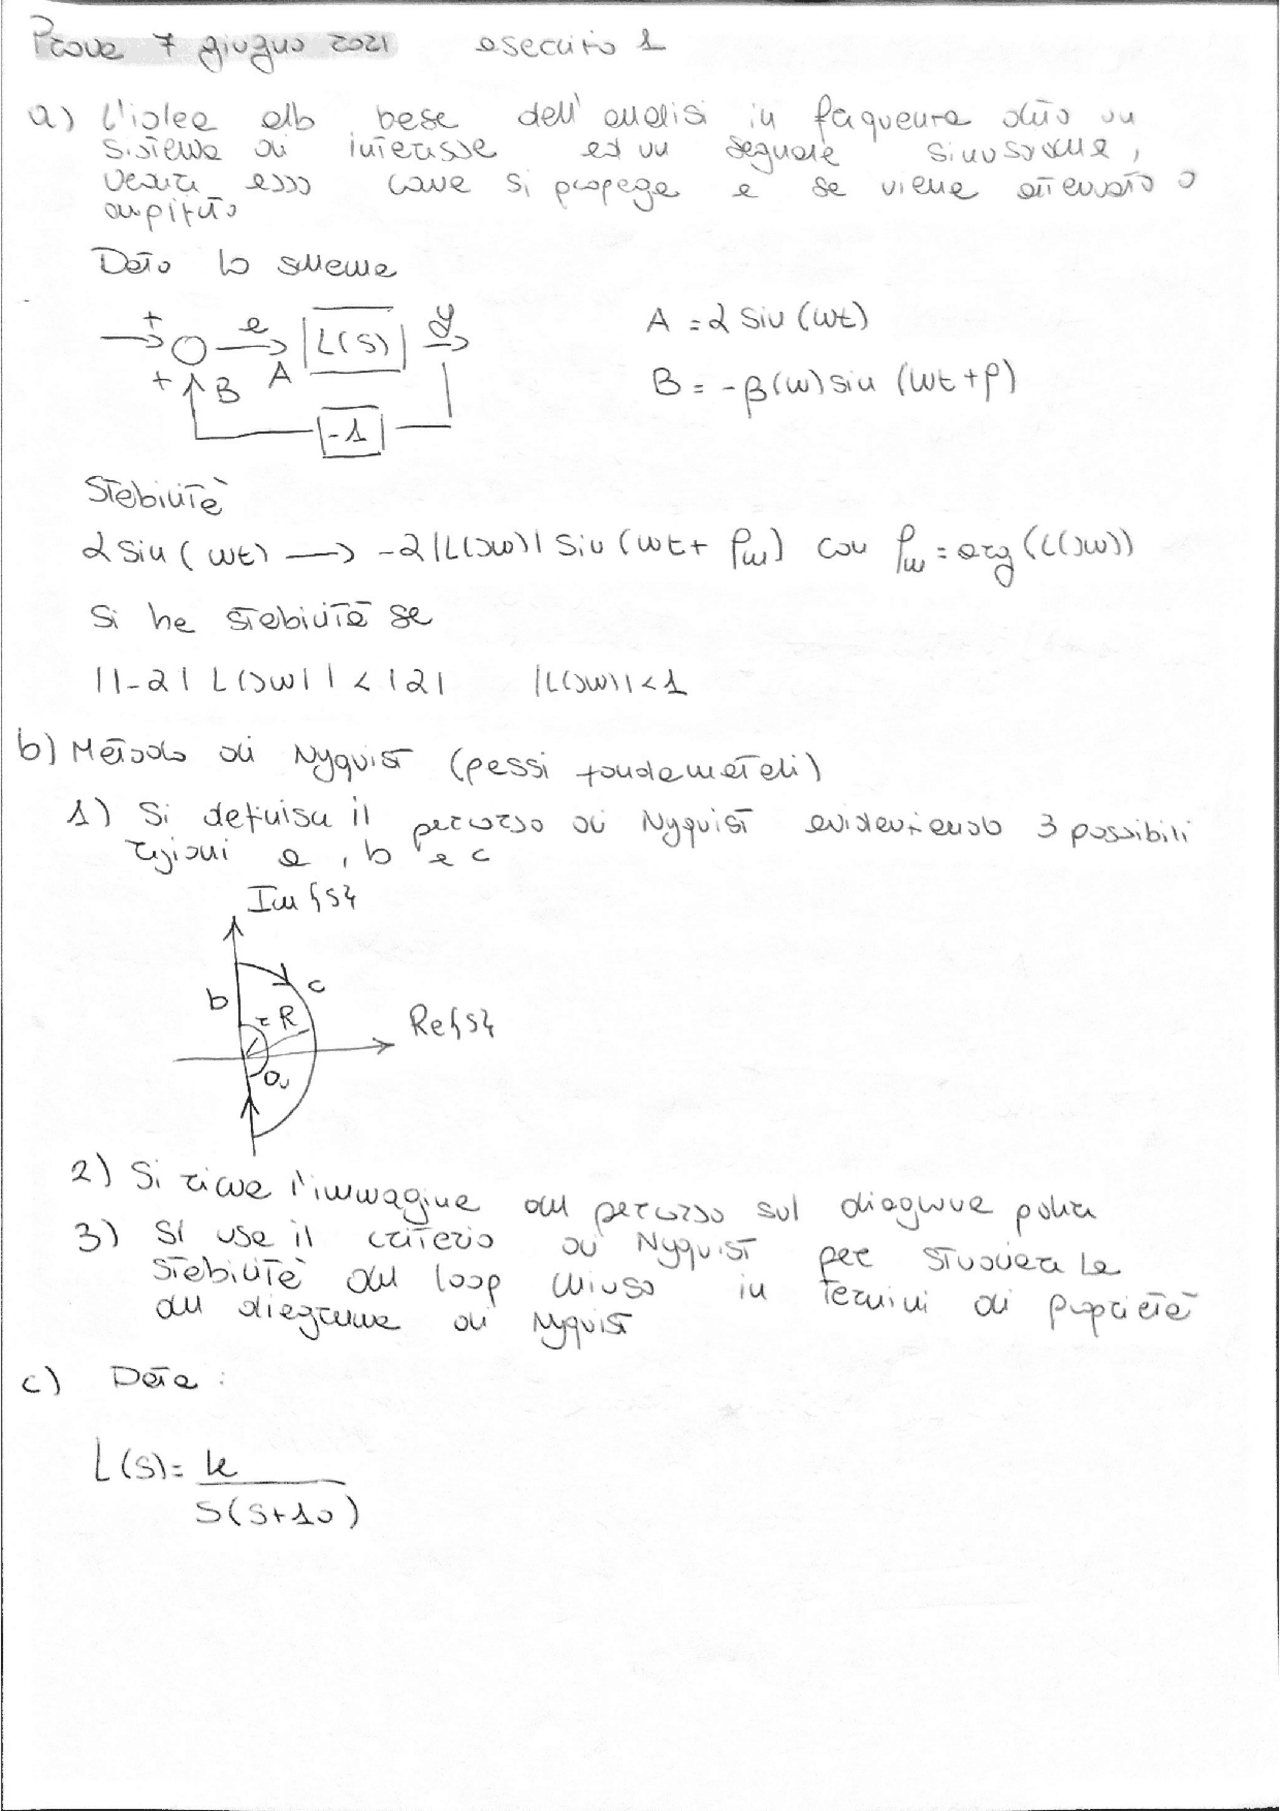 Prova 7 giugno 2021 esercizio 1
a) L'idea alla base dell'analisi in frequenza dato un
sistema di interesse ed un segnale sinusoidale,
vedere esso come si propaga e se viene attenuato o
amplificato
Dato lo schema
+ e L(s) y
+ B A
-1
A = 2 sin (wt)
B = -β(w) sin (wt+φ)
Stabilità
2 sin (wt) → -2|L(jw)| sin (wt + φw) con φw = arg (L(jw))
Si ha stabilità se
||-2| L(jw)| < |2| |L(jw)| < 1
b) Metodo di Nyquist (passi fondametali)
1) Si definisce il percorso di Nyquist evidenziando 3 possibili
regioni a, b e c
Im{s}
b c
r R Re{s}
a
2) Si ricava l'immagine del percorso sul diagramma polare
3) Si usa il criterio di Nyquist per studiare la
stabilità del loop chiuso in termini di proprietà
del diagramma di Nyquist
c) Data:
L(s) = k
s(s+10)